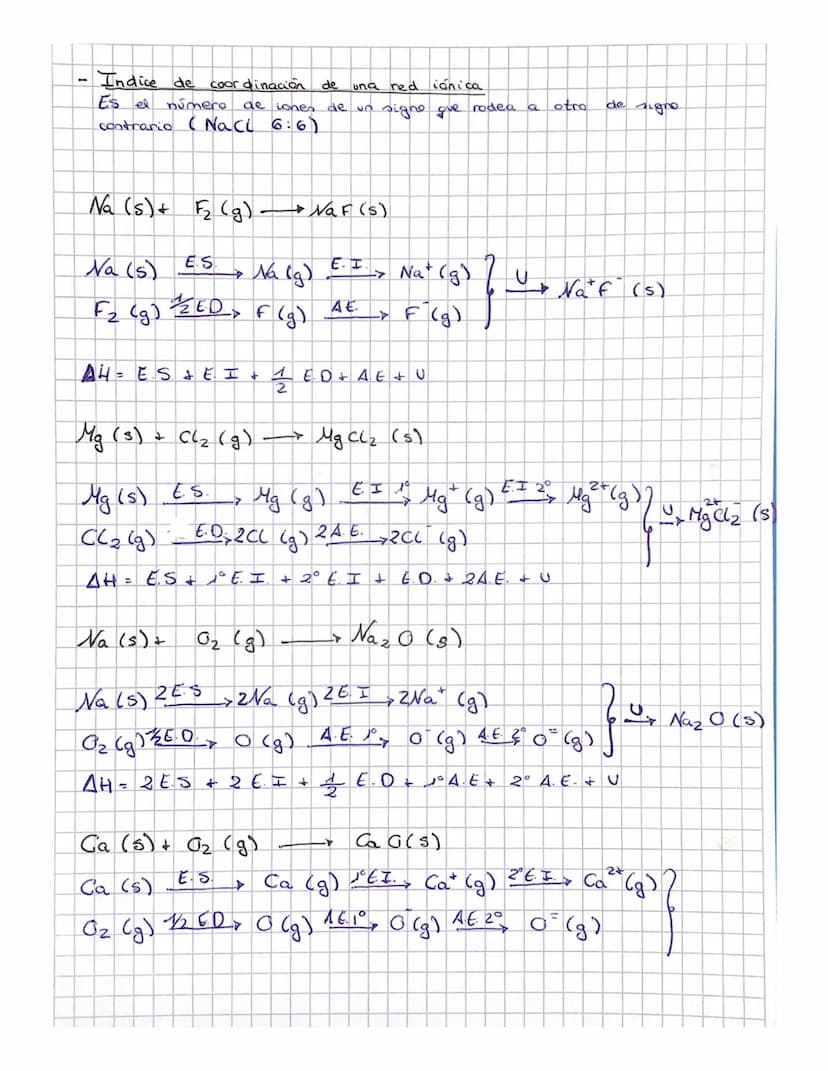 - Indice de coordinación de una red iónica
Es el número de iones de un signo que rodea a otro de signo
contrario (NaCl 6:6)
Na (s) + F₂ (g) ⟶ NaF (s)
Na (s) E.S. → Na (g) E.I. → Na⁺ (g) } U → Na⁺F⁻ (s)
F₂ (g) ½ E.D → F (g) A.E. → F⁻ (g)
ΔH = E.S + E.I + 1/2 E.D + A.E + U
Mg (s) + Cl₂ (g) ⟶ MgCl₂ (s)
Mg (s) E.S. → Mg (g) E.I 1º → Mg⁺ (g) E.I 2º → Mg²⁺ (g) } U → Mg²⁺Cl₂⁻ (s)
Cl₂ (g) E.D → 2Cl (g) 2A.E. → 2Cl⁻ (g)
ΔH = E.S + 1º E.I. + 2º E.I + E.D. + 2A.E. + U
Na (s) + O₂ (g) ⟶ Na₂O (s)
Na (s) 2E.S → 2Na (g) 2E.I → 2Na⁺ (g) } U → Na₂O (s)
O₂ (g) ½E.D. → O (g) A.E. 1º → O⁻ (g) A.E. 2º → O⁼ (g)
ΔH = 2E.S + 2E.I + 1/2 E.D + 1º A.E + 2º A.E. + U
Ca (s) + O₂ (g) ⟶ CaO (s)
Ca (s) E.S. → Ca (g) 1º E.I. → Ca⁺ (g) 2º E.I. → Ca²⁺ (g) }
O₂ (g) 1/2 E.D → O (g) A.E. 1º → O⁻ (g) A.E. 2º → O⁼ (g)